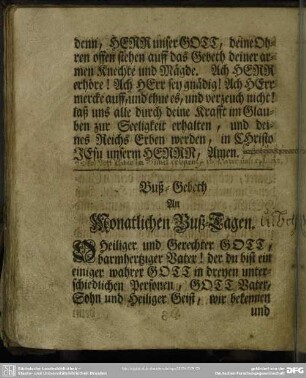 denn, HERR unser GOTT, deine Oh-
ren offen stehen auff das Gebeth deiner ar-
men Knechte und Mägde. Ach HERR
erhöre! Ach HErr sey gnädig! Ach HErr
mercke auff und thue es, und verzeuch nicht!
laß uns alle durch deine Krafft im Glau-
ben zur Seeligkeit erhalten, und dei-
nes Reichs Erben werden, in CHristo
JEsu unserm HERRN, Amen.
Buß-Gebeth
An
Monatlichen Buß-Tagen.
O Heiliger und Gerechter GOTT,
barmhertziger Vater! der du bist ein
einiger wahrer GOTT in dreyen unter-
schiedlichen Personen, GOTT Vater,
Sohn und Heiliger Geist, wir bekennen
und